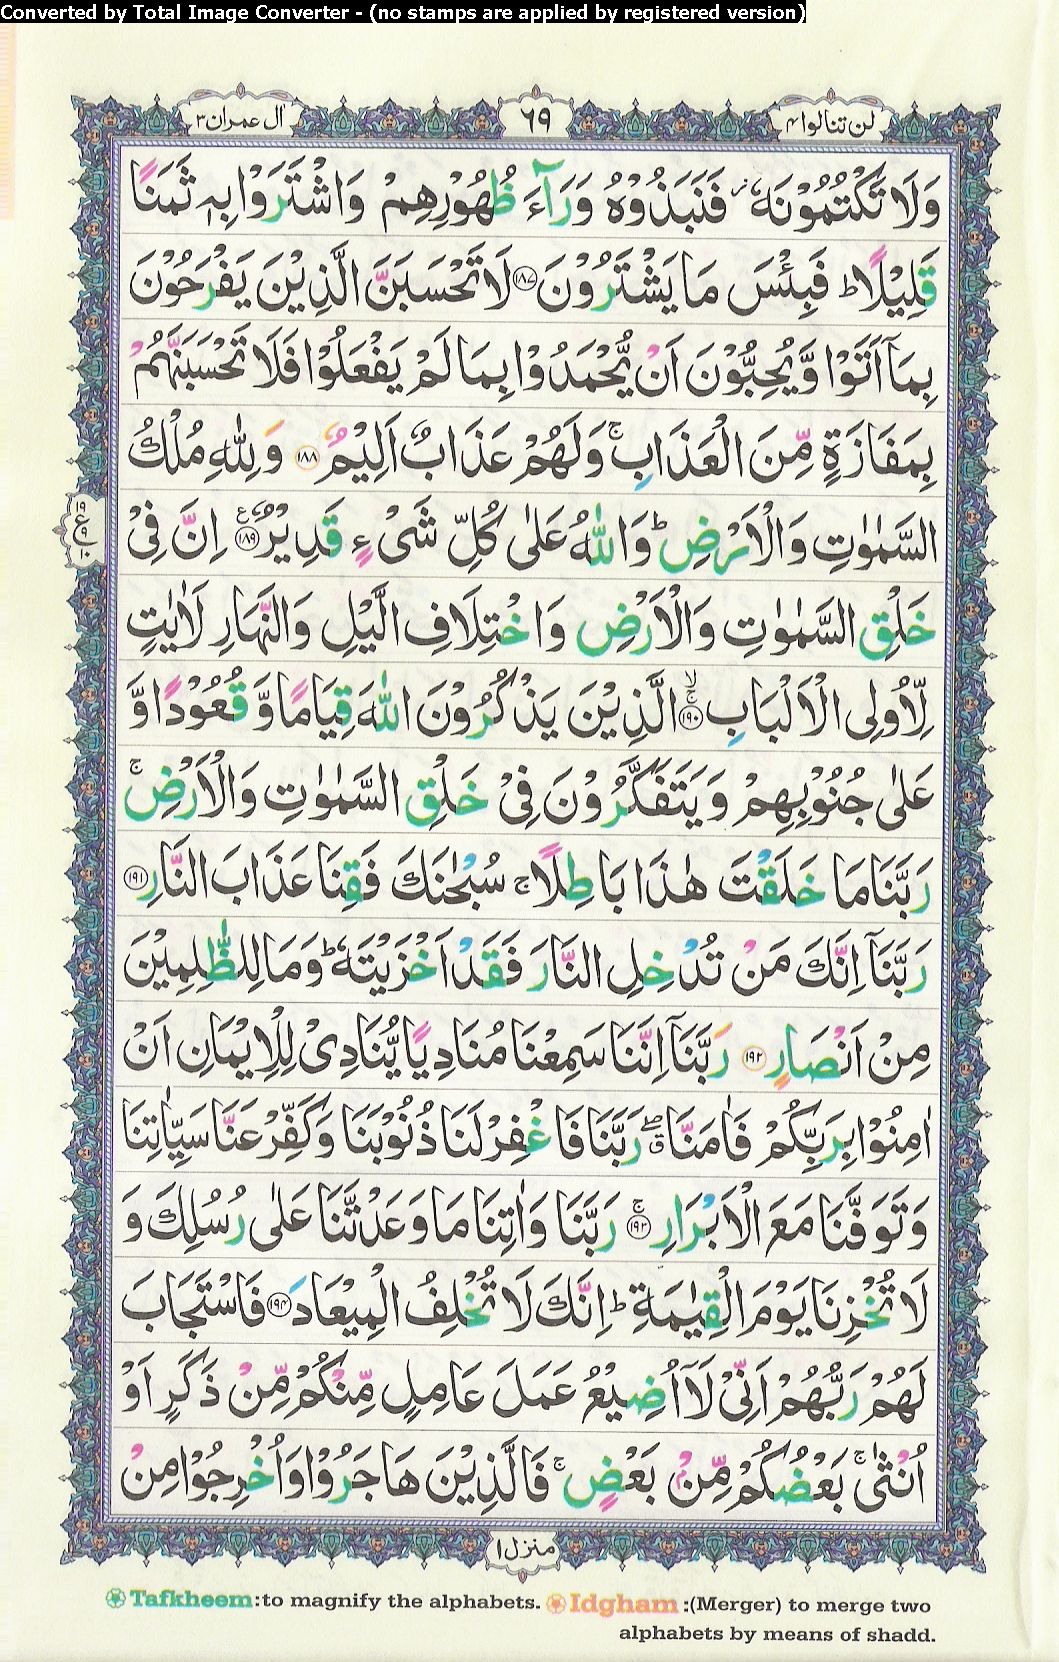 Converted by Total Image Converter - (no stamps are applied by registered version)
لن تنالوا ٤ ٦٩ اٰل عمران ٣
وَلَا تَكْتُمُوْنَهٗ ز فَنَبَذُوْهُ وَرَآءَ ظُهُوْرِهِمْ وَاشْتَرَوْا بِهٖ ثَمَنًا
قَلِيْلًا ؕ فَبِئْسَ مَا يَشْتَرُوْنَ ۱۸۷ لَا تَحْسَبَنَّ الَّذِيْنَ يَفْرَحُوْنَ
بِمَاۤ اَتَوْا وَّيُحِبُّوْنَ اَنْ يُّحْمَدُوْا بِمَا لَمْ يَفْعَلُوْا فَلَا تَحْسَبَنَّهُمْ
بِمَفَازَةٍ مِّنَ الْعَذَابِ ۚ وَلَهُمْ عَذَابٌ اَلِيْمٌ ۱۸۸ وَلِلّٰهِ مُلْكُ
السَّمٰوٰتِ وَالْاَرْضِ ؕ وَاللّٰهُ عَلٰى كُلِّ شَیْءٍ قَدِيْرٌ ۱۸۹ ع اِنَّ فِیْ
۱۹ ع ۹ ۱۰
خَلْقِ السَّمٰوٰتِ وَالْاَرْضِ وَاخْتِلَافِ الَّيْلِ وَالنَّهَارِ لَاٰيٰتٍ
لِّاُولِى الْاَلْبَابِ ۱۹۰ ۙۚ الَّذِيْنَ يَذْكُرُوْنَ اللّٰهَ قِيَامًا وَّقُعُوْدًا وَّ
عَلٰى جُنُوْبِهِمْ وَيَتَفَكَّرُوْنَ فِیْ خَلْقِ السَّمٰوٰتِ وَالْاَرْضِ ۚ
رَبَّنَا مَا خَلَقْتَ هٰذَا بَاطِلًا ۚ سُبْحٰنَكَ فَقِنَا عَذَابَ النَّارِ ۱۹۱
رَبَّنَاۤ اِنَّكَ مَنْ تُدْخِلِ النَّارَ فَقَدْ اَخْزَيْتَهٗ ؕ وَمَا لِلظّٰلِمِيْنَ
مِنْ اَنْصَارٍ ۱۹۲ رَبَّنَاۤ اِنَّنَا سَمِعْنَا مُنَادِيًا يُّنَادِیْ لِلْاِيْمَانِ اَنْ
اٰمِنُوْا بِرَبِّكُمْ فَاٰمَنَّا ۖق رَبَّنَا فَاغْفِرْ لَنَا ذُنُوْبَنَا وَكَفِّرْ عَنَّا سَيِّاٰتِنَا
وَتَوَفَّنَا مَعَ الْاَبْرَارِ ۱۹۳ ۚ رَبَّنَا وَاٰتِنَا مَا وَعَدْتَّنَا عَلٰى رُسُلِكَ وَ
لَا تُخْزِنَا يَوْمَ الْقِيٰمَةِ ؕ اِنَّكَ لَا تُخْلِفُ الْمِيْعَادَ ۱۹۴ فَاسْتَجَابَ
لَهُمْ رَبُّهُمْ اَنِّیْ لَاۤ اُضِيْعُ عَمَلَ عَامِلٍ مِّنْكُمْ مِّنْ ذَكَرٍ اَوْ
اُنْثٰى ۚ بَعْضُكُمْ مِّنْۢ بَعْضٍ ۚ فَالَّذِيْنَ هَاجَرُوْا وَاُخْرِجُوْا مِنْ
منزل ۱
Tafkheem:to magnify the alphabets. Idgham :(Merger) to merge two
alphabets by means of shadd.